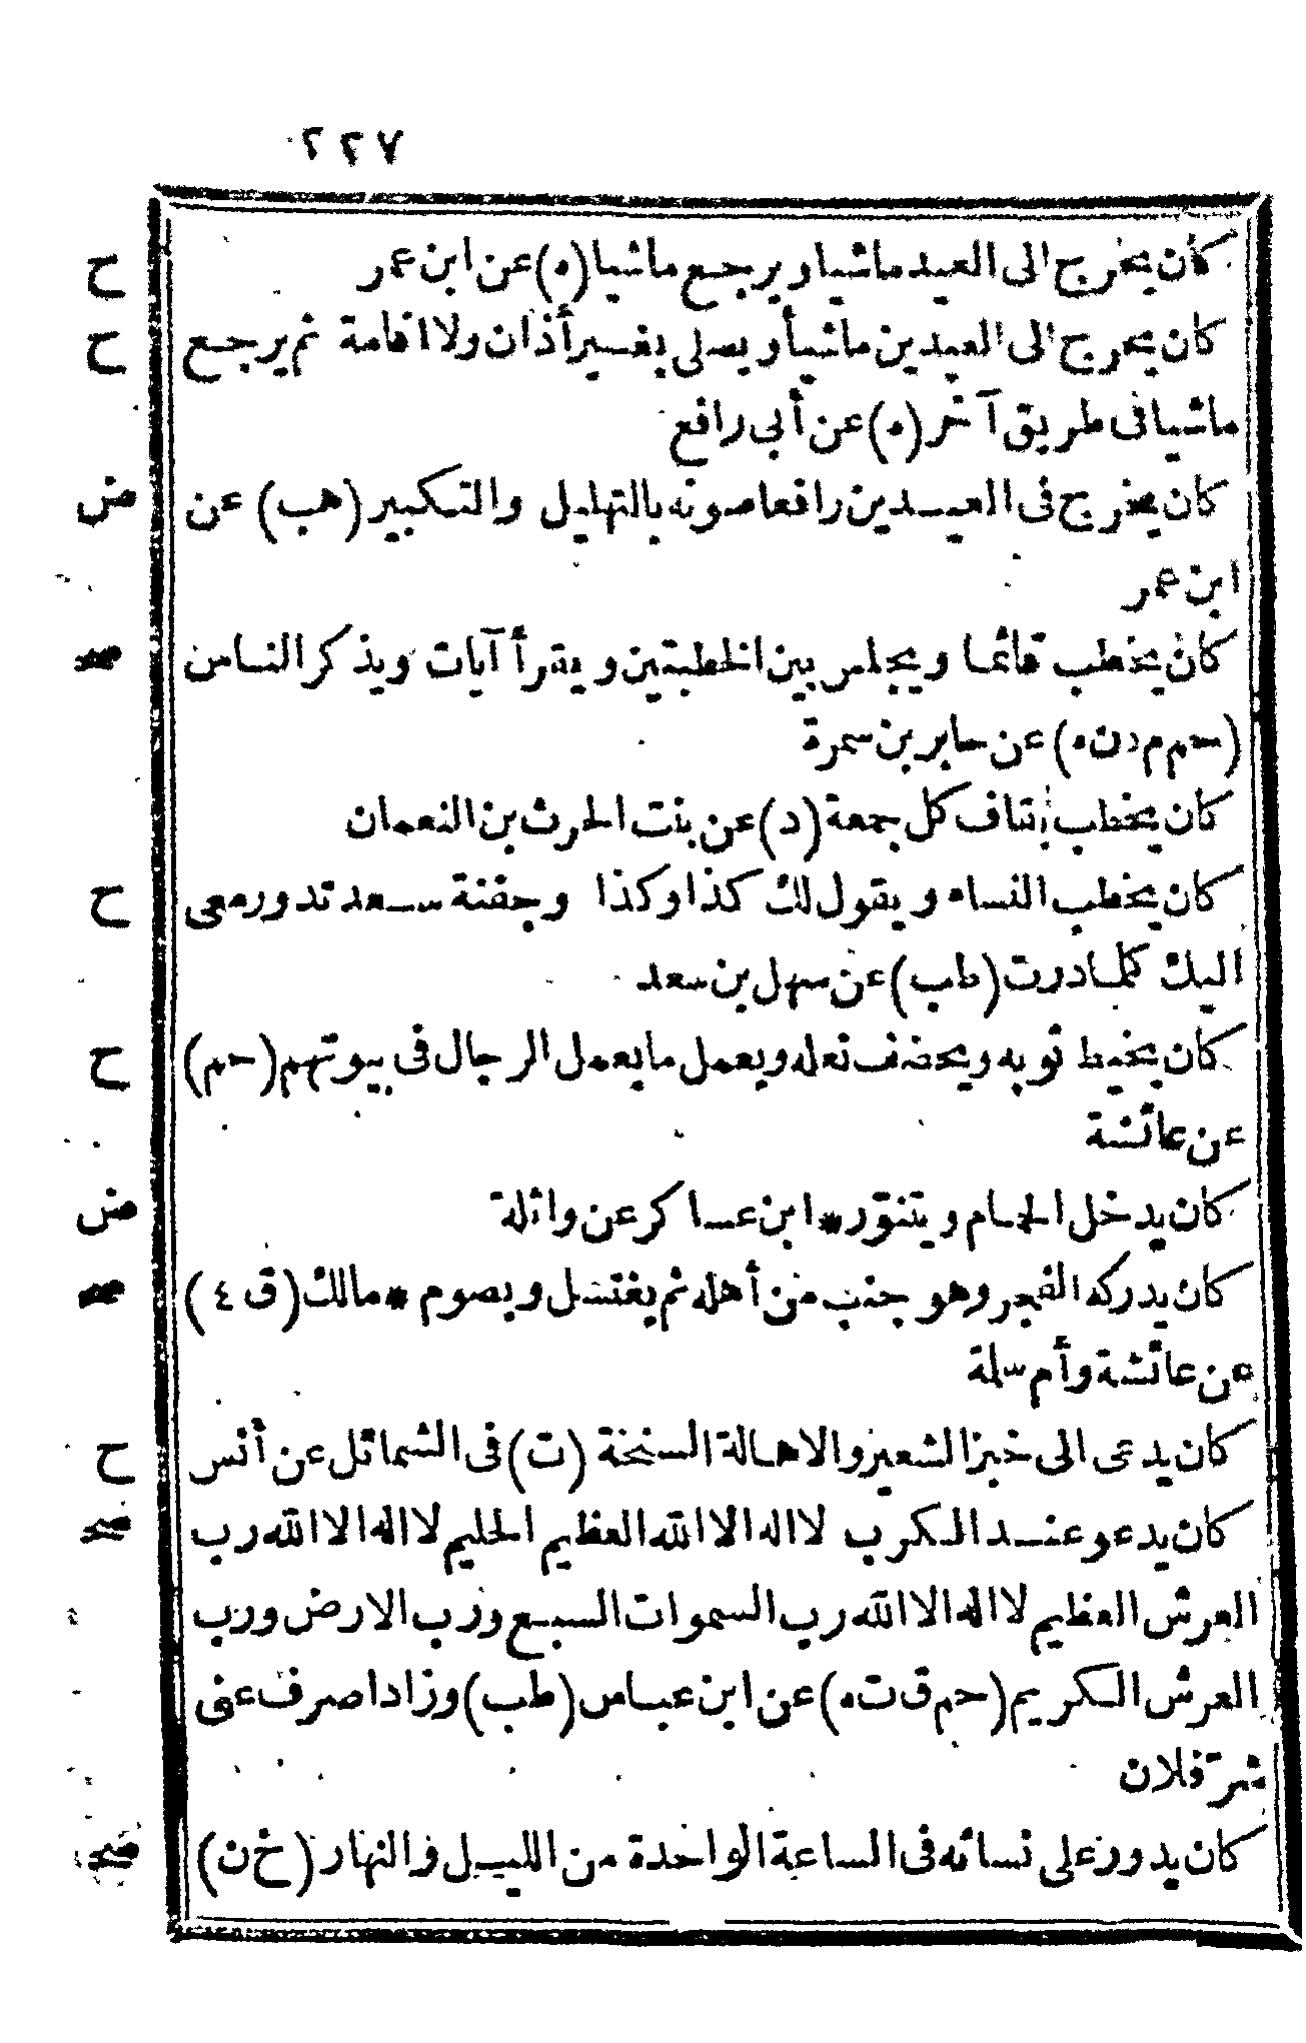 ٢٢٧
كان يخرج الى العيد ماشيا ويرجع ماشيا (ه) عن ابن عمر
ح
كان يخرج الى العيدين ماشيا ويصلى بغير أذان ولا اقامة ثم يرجع
ح
ماشيا فى طريق آخر (ه) عن أبى رافع
كان يخرج فى العيدين رافعا صوته بالتهليل والتكبير (هب) عن
ض
ابن عمر
كان يخطب قائما ويجلس بين الخطبتين ويقرأ آيات ويذكر الناس
صح
(حم م د ن ه) عن جابر بن سمرة
كان يخطب بقاف كل جمعة (د) عن بنت الحرث بن النعمان
كان يخطب النساء ويقول لك كذا وكذا وجفنة سعد تدور معى
ح
اليك كلما درت (طب) عن سهل بن سعد
كان يخيط ثوبه ويخصف نعله ويعمل ما يعمل الرجال فى بيوتهم (حم)
ح
عن عائشة
كان يدخل الحمام ويتنور * ابن عساكر عن واثلة
ض
كان يدركه الفجر وهو جنب من أهله ثم يغتسل ويصوم * مالك (ق ٤)
صح
عن عائشة وأم سلمة
كان يدعى الى خبز الشعير والاهالة السنخة (ت) فى الشمائل عن أنس
ح
كان يدعو عند الكرب لا اله الا الله العظيم الحليم لا اله الا الله رب
صح
العرش العظيم لا اله الا الله رب السموات السبع ورب الارض ورب
العرش الكريم (حم ق ت ه) عن ابن عباس (طب) وزاد اصرف عنى
شر فلان
كان يدور على نسائه فى الساعة الواحدة من الليل والنهار (خ ن)
صح